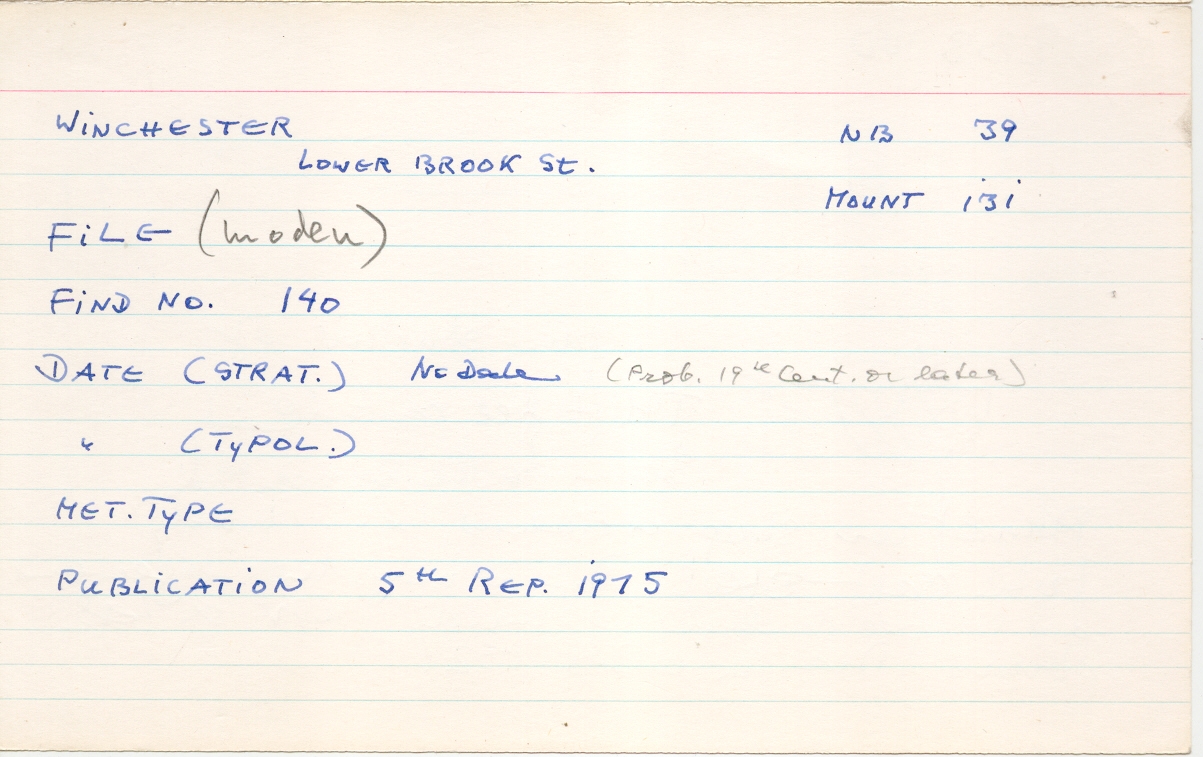 WINCHESTER NB 39
LOWER BROOK St.
MOUNT 131
FILE (moden)
FIND NO. 140
DATE (STRAT.) No Date (Prob. 19th Cent. or later)
" (TYPOL.)
MET. TYPE
PUBLICATION 5th REP. 1975